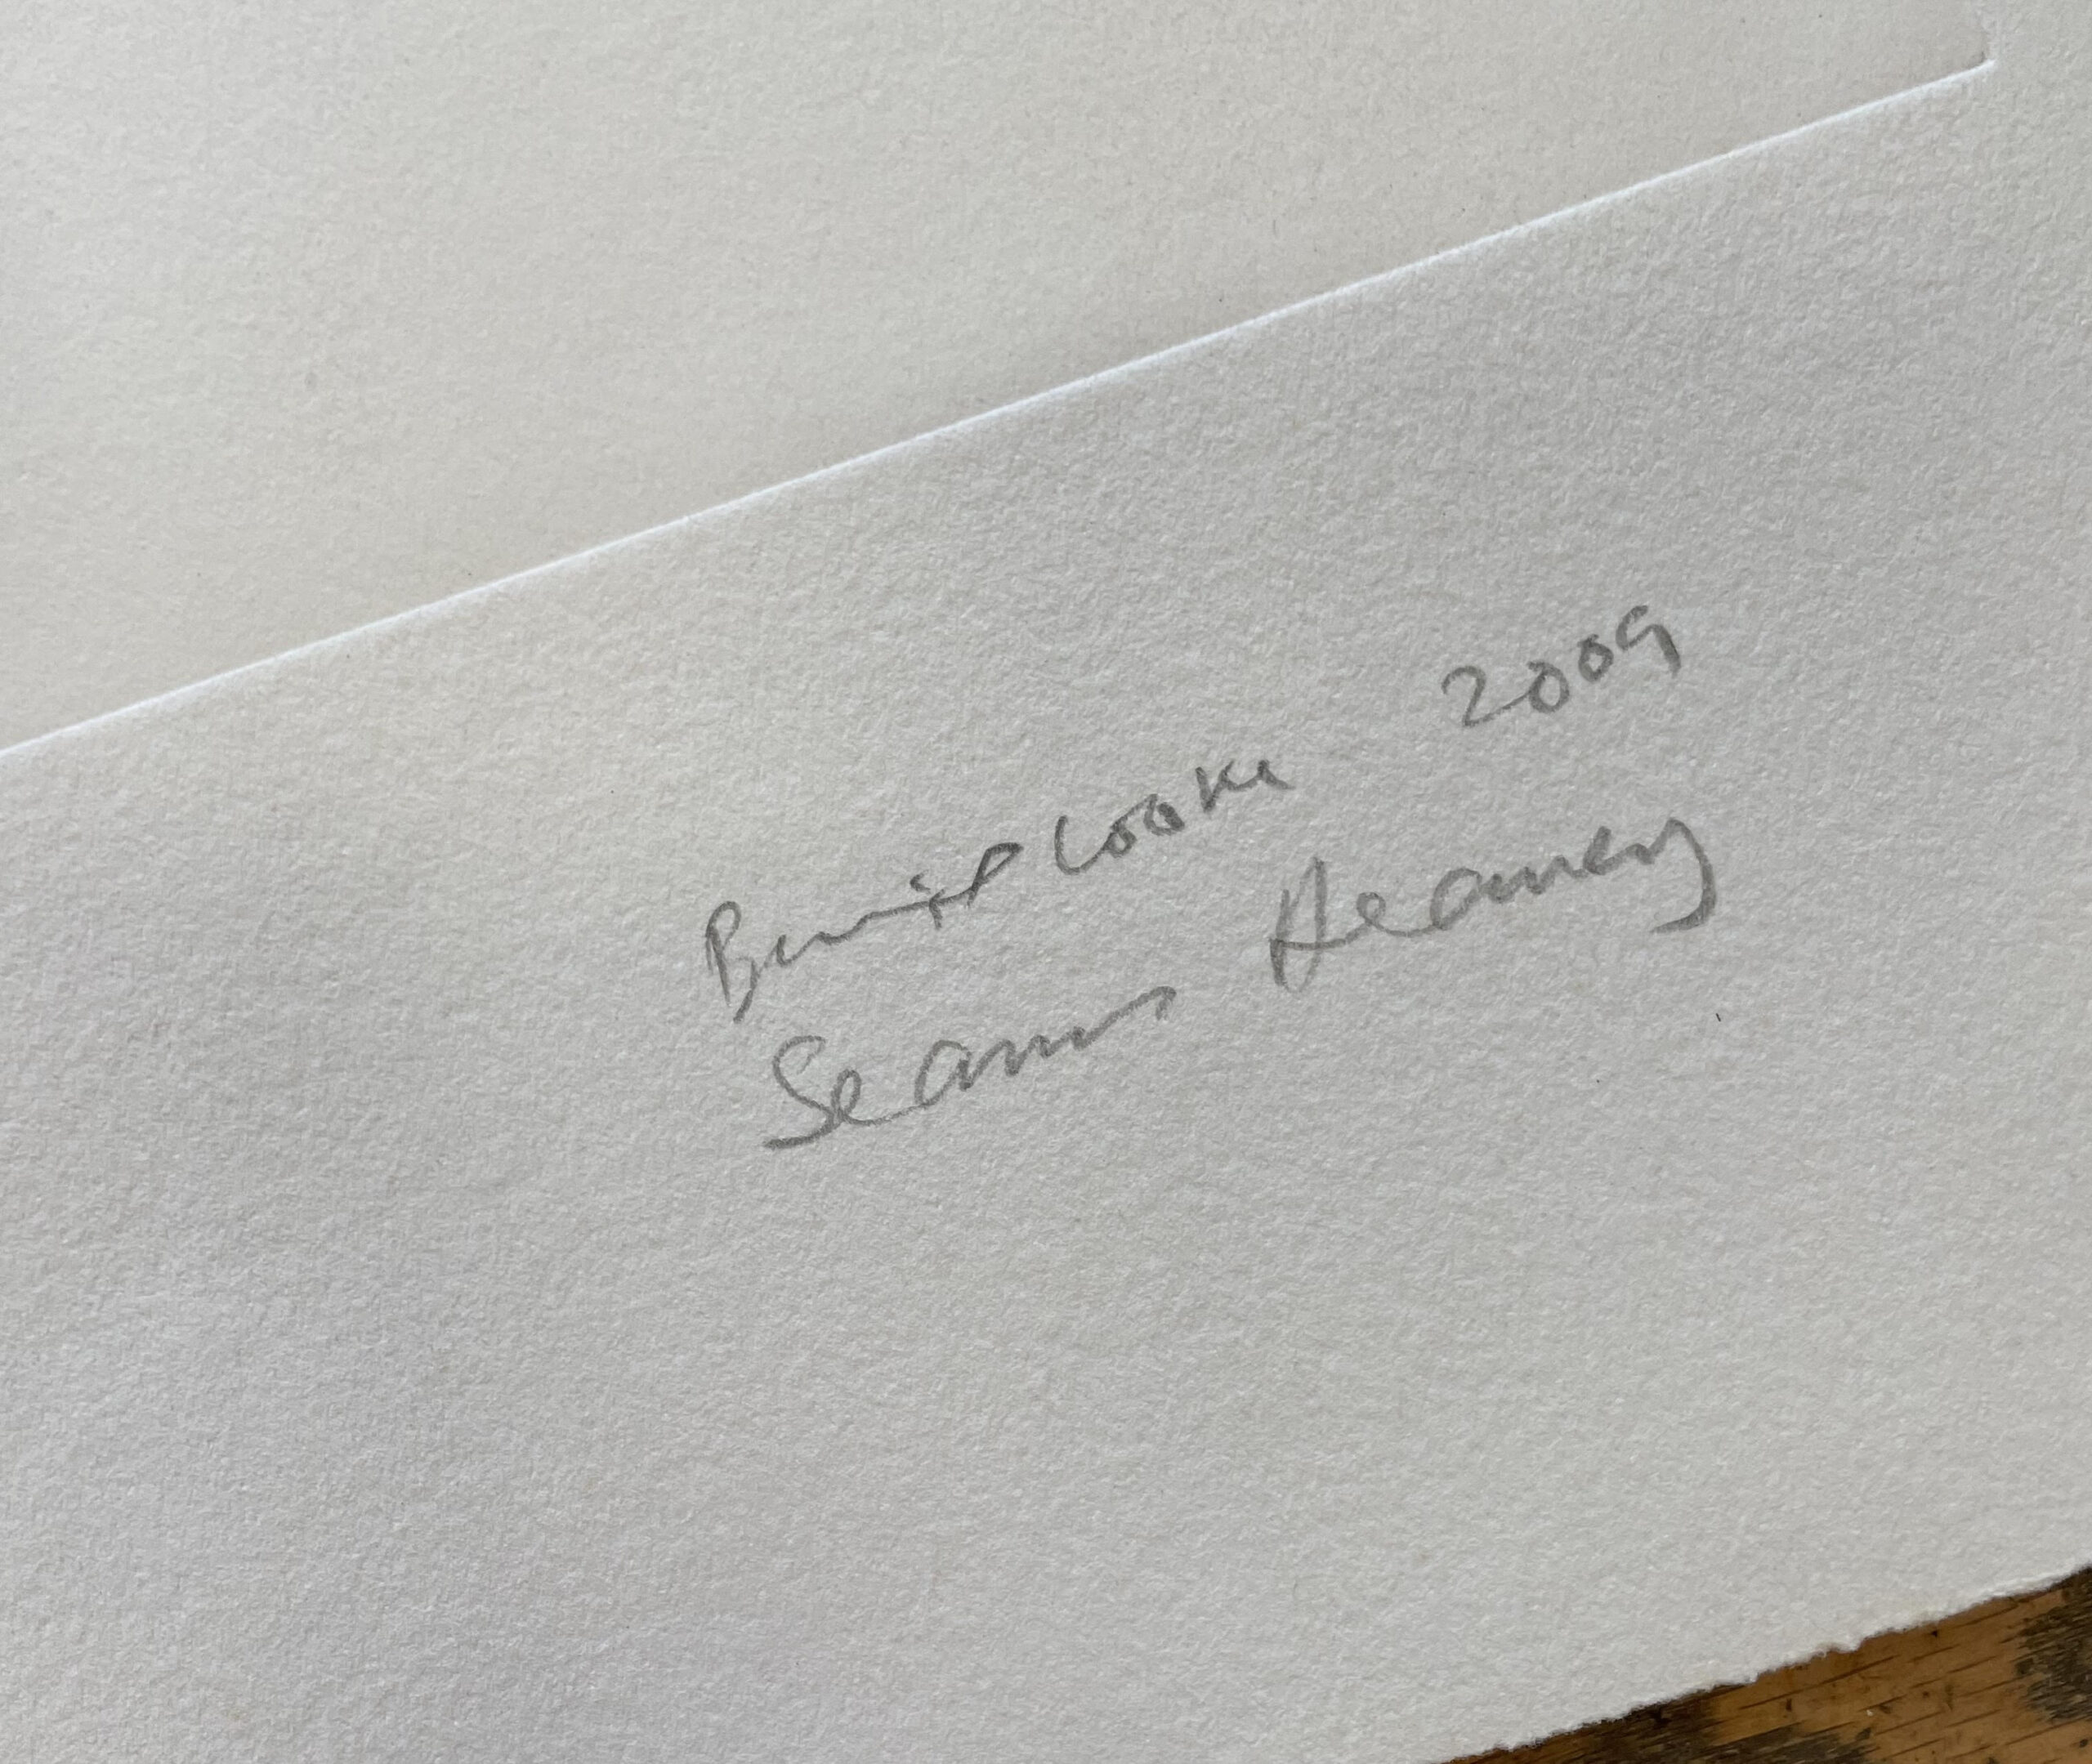 Barrie Cooke 2009
Seamus Heaney